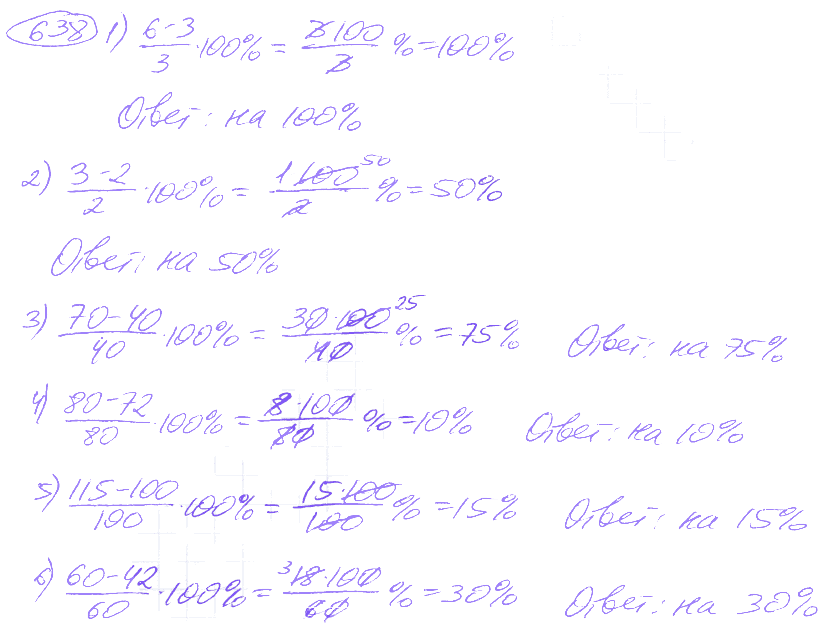 638 1) (6-3)/3 · 100% = (3·100)/3 % = 100%
Ответ: на 100%
2) (3-2)/2 · 100% = (1·100)/2 50 % = 50%
Ответ: на 50%
3) (70-40)/40 · 100% = (30·100)/40 25 % = 75% Ответ: на 75%
4) (80-72)/80 · 100% = (8·100)/80 % = 10% Ответ: на 10%
5) (115-100)/100 · 100% = (15·100)/100 % = 15% Ответ: на 15%
6) (60-42)/60 · 100% = 3 (18·100)/60 % = 30% Ответ: на 30%